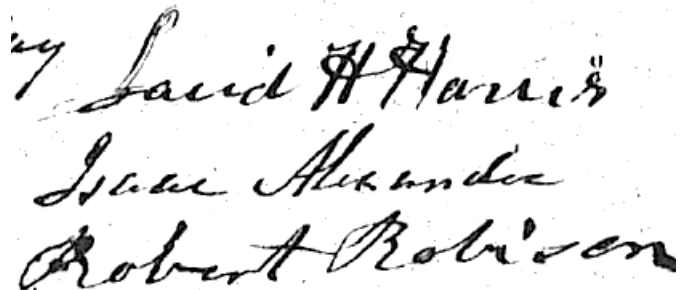 ay David H Harris
Isaac Alexander
Robert Robison